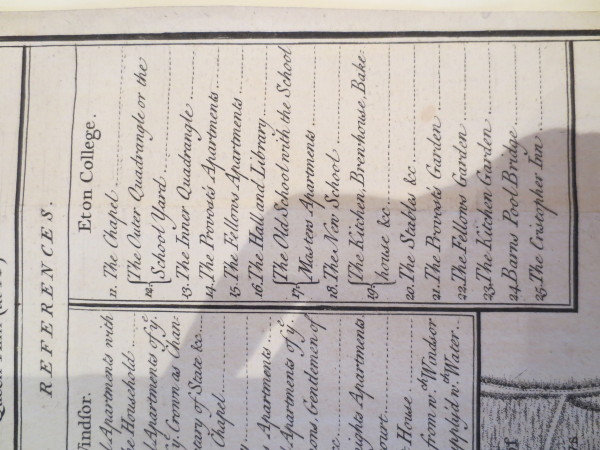 REFERENCES.
Eton College.
11. The Chapel
12. The Outer Quadrangle or the
School Yard
13. The Inner Quadrangle
14. The Provosts Apartments
15. The Fellows Apartments
16. The Hall and Library
17. The Old School with the School
Masters Apartments
18. The New School
19. The Kitchen, Brewhouse, Bake-
house &c
20. The Stables &c
21. The Provosts Garden
22. The Fellows Garden
23. The Kitchen Garden
24. Barns Pool Bridge
25. The Cristopher Inn
Apartments with
Household
Apartments of ye.
Crown as Chan-
of State &c
Chapel
Apartments
Apartments of ye.
Gentlemen of
Apartments
House
from wch. Windsor
wth. Water